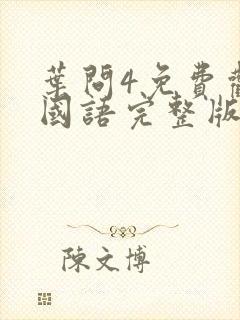 葉問4免費
國語完整版
陳文博